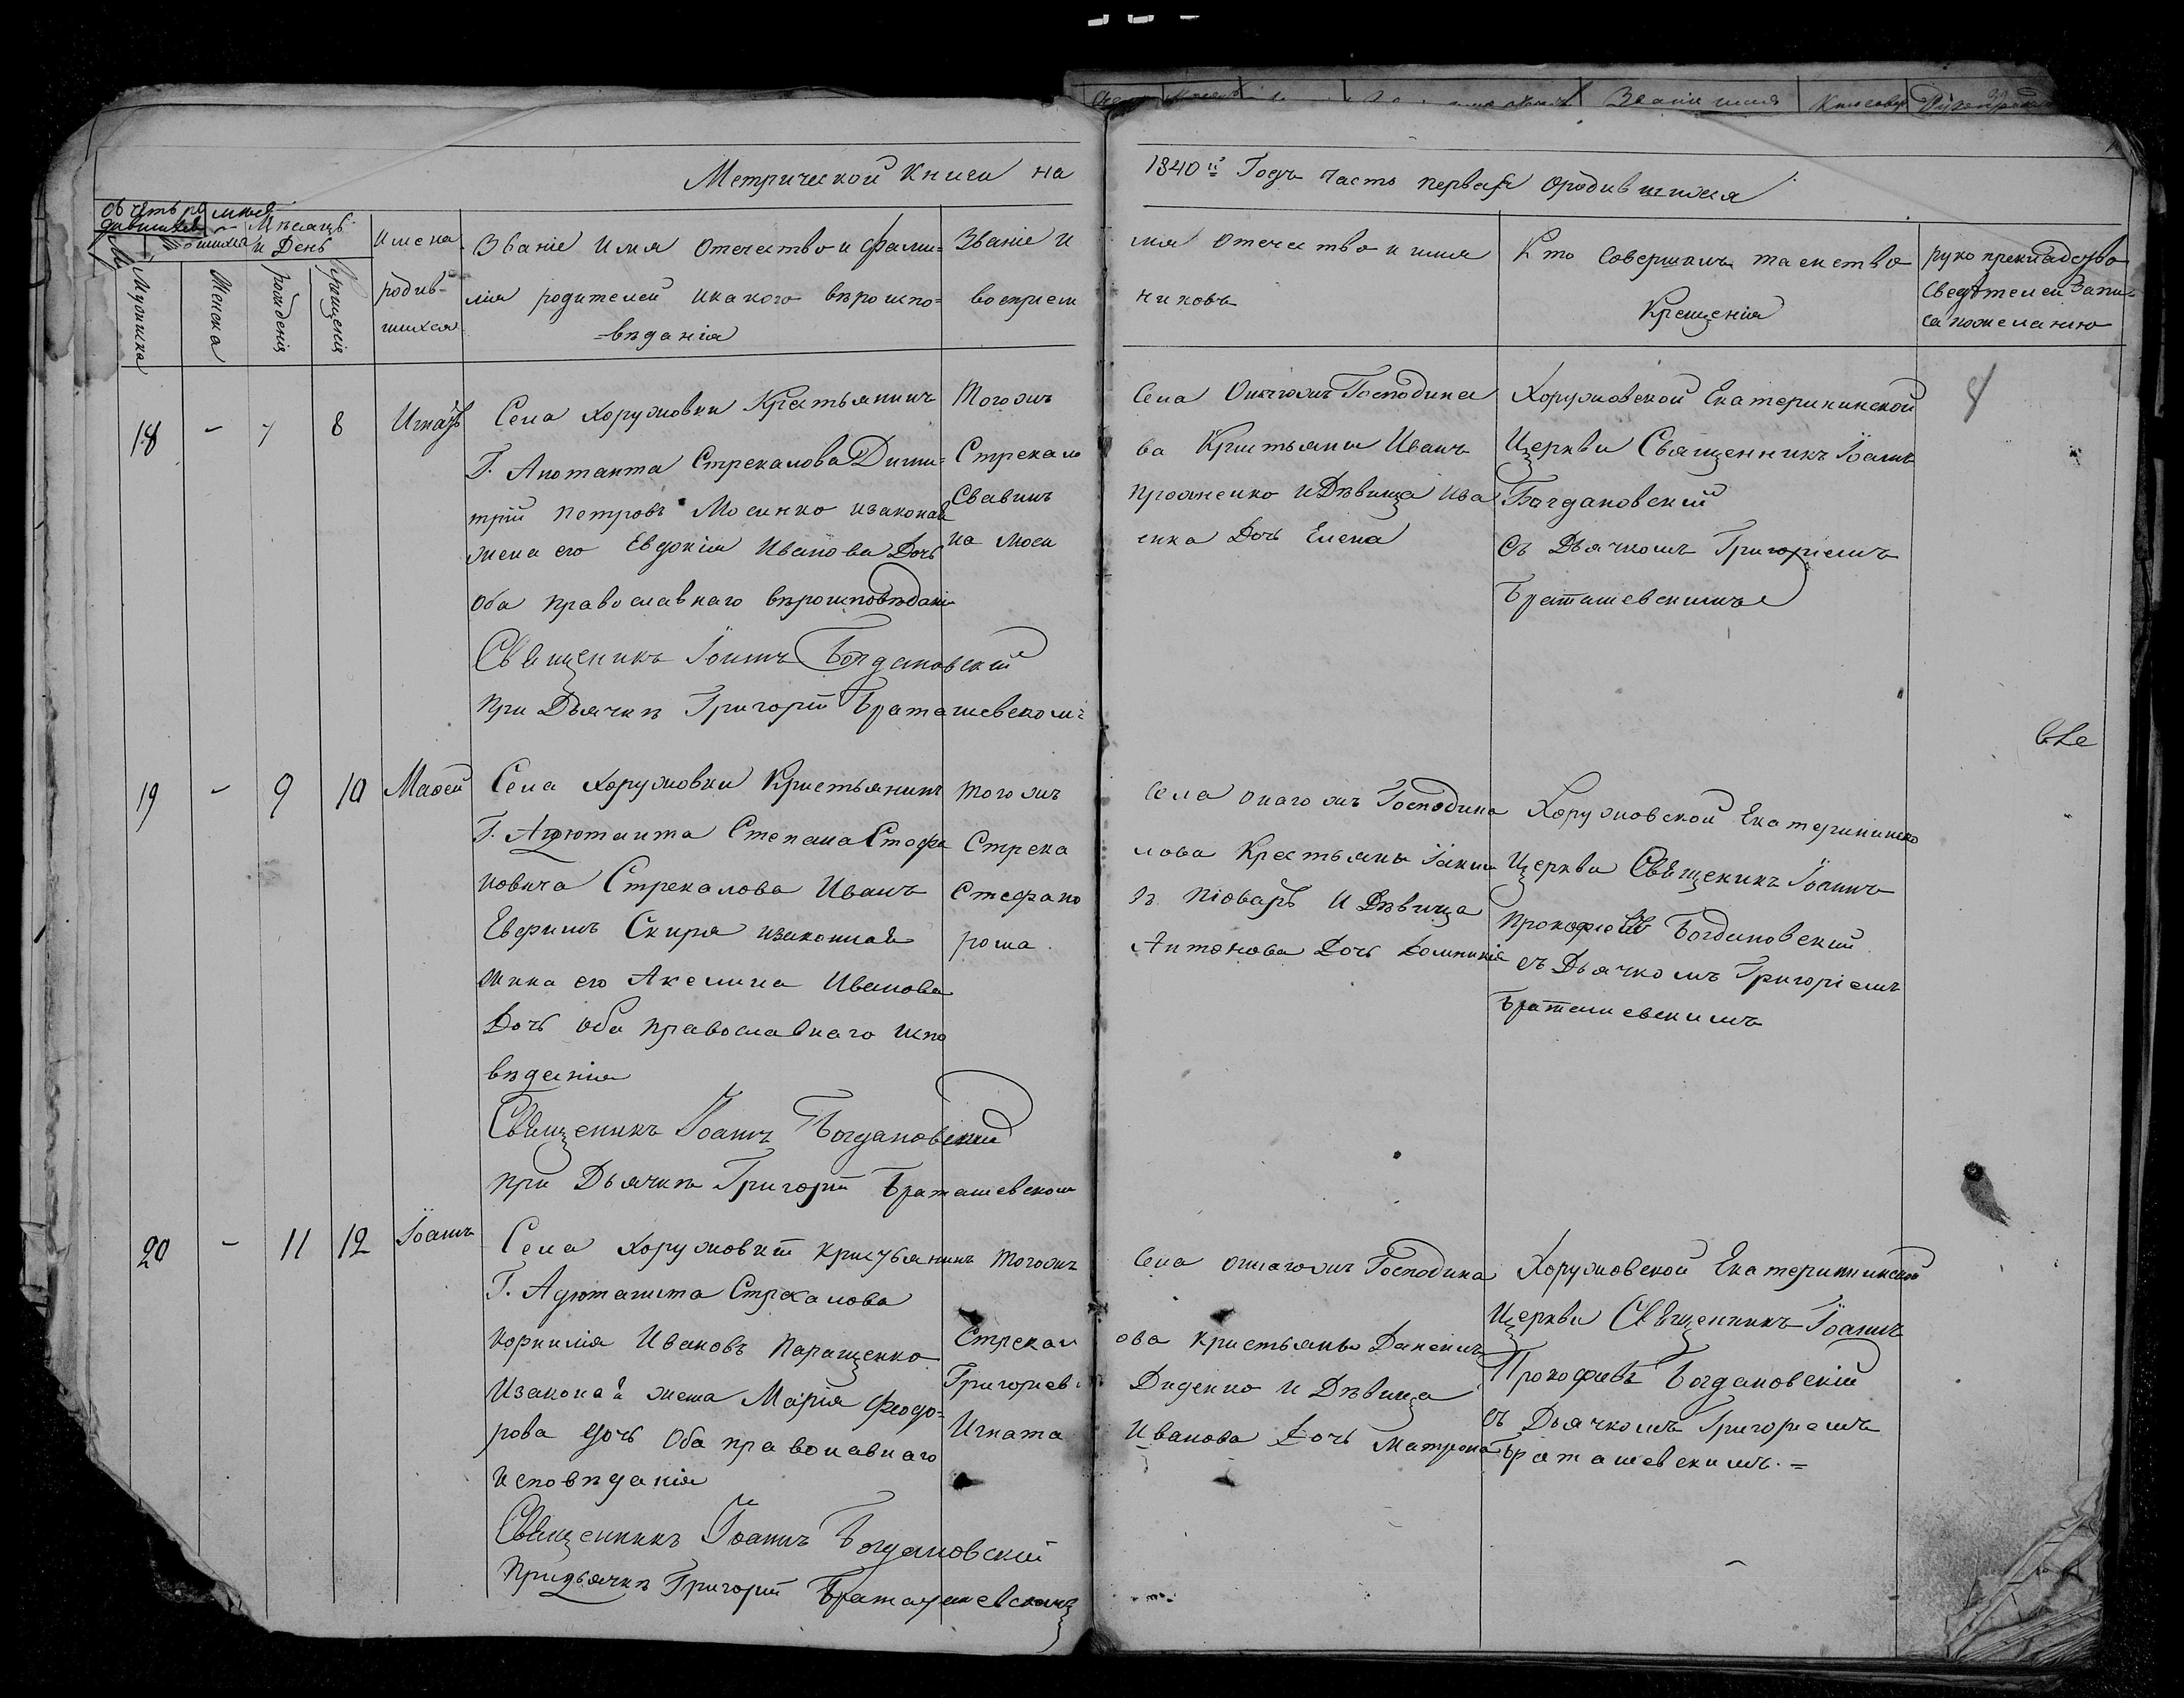 Метрической книги на
1840й Годъ Часть первая о родившихся
Мѣсяцъ
и День
Мужска
Женска
рожденія
крещенія
Имена
родив-
шихся
Званіе Имя Отечество и фами-
лія родителей и какого вѣроиспо-
-вѣданія
Званіе и
воспріем
мя Отечество и
никовъ
Кто Совершилъ таинство
Крещенія
рукоприкладство
Свѣдѣтелей запи-
са по желанію
18
-
7
8
Села Хоружовки Крестьянинъ
Стрекалова Дими-
трій Петровъ Мосенко и законая
жена его Евдокія Иванова Дочь
Оба православнаго вѣроисповѣдані
Священикъ Іоаннъ Богдановскій
при Дьячкѣ Григоріи Браташевскомъ
Тогожъ
Стрекало
Савинъ
на Моси
Села Господина
ва Крестьяны Иванъ
и Дѣвица Ива
енка Дочь Елена
Хоружовской Екатерининской
Церкви Священникъ Іоаннъ
Богдановскій
Съ Дьячкомъ Григоріемъ
Браташевскимъ
8
19
-
9
10
Мафей
Села Хоружовки Крестьянинъ
Г. Адютанта Степана Стефа
новича Стрекалова Иванъ
Евфимъ Скира и законная
жена его Акелина Иванова
Дочь оба православнаго испо
вѣданія
Священикъ Іоаннъ Богдановскій
при Дьячкѣ Григоріи Браташевском
Тогожъ
Стрека
Стефано
рома
Села онагожъ Господина
лова Крестьяны Іаким
ъ Пиваръ и Дѣвица
Антонова Дочь Домникія
Хоружовской Екатерининско
Церкви Священикъ Іоаннъ
Прокофіевъ Богдановский
съ Дьячкомъ Григоріемъ
Браташевскимъ
20
-
11
12
Іоаннъ
Села Хоружовки крестьянинъ
Г. Адютанта Стрекалова
Корнилія Ивановъ Паращенко
И законая жена Марія Феодо-
рова Дочь Оба православнаго
исповѣданія
Священникъ Іоаннъ Богдановский
При дьячкѣ Григоріи Браташевскомъ
Тогожъ
Стрекал
Григориев
Игната
Села онагожъ Господина
ова крестьяны
Диденко и Дѣвица
Иванова Дочь Матрона
Хоружовской Екатерининской
Церкви Священникъ Іоаннъ
Прокофіевъ Богдановскій
съ Дьячкомъ Григоріемъ
Браташевскимъ. =